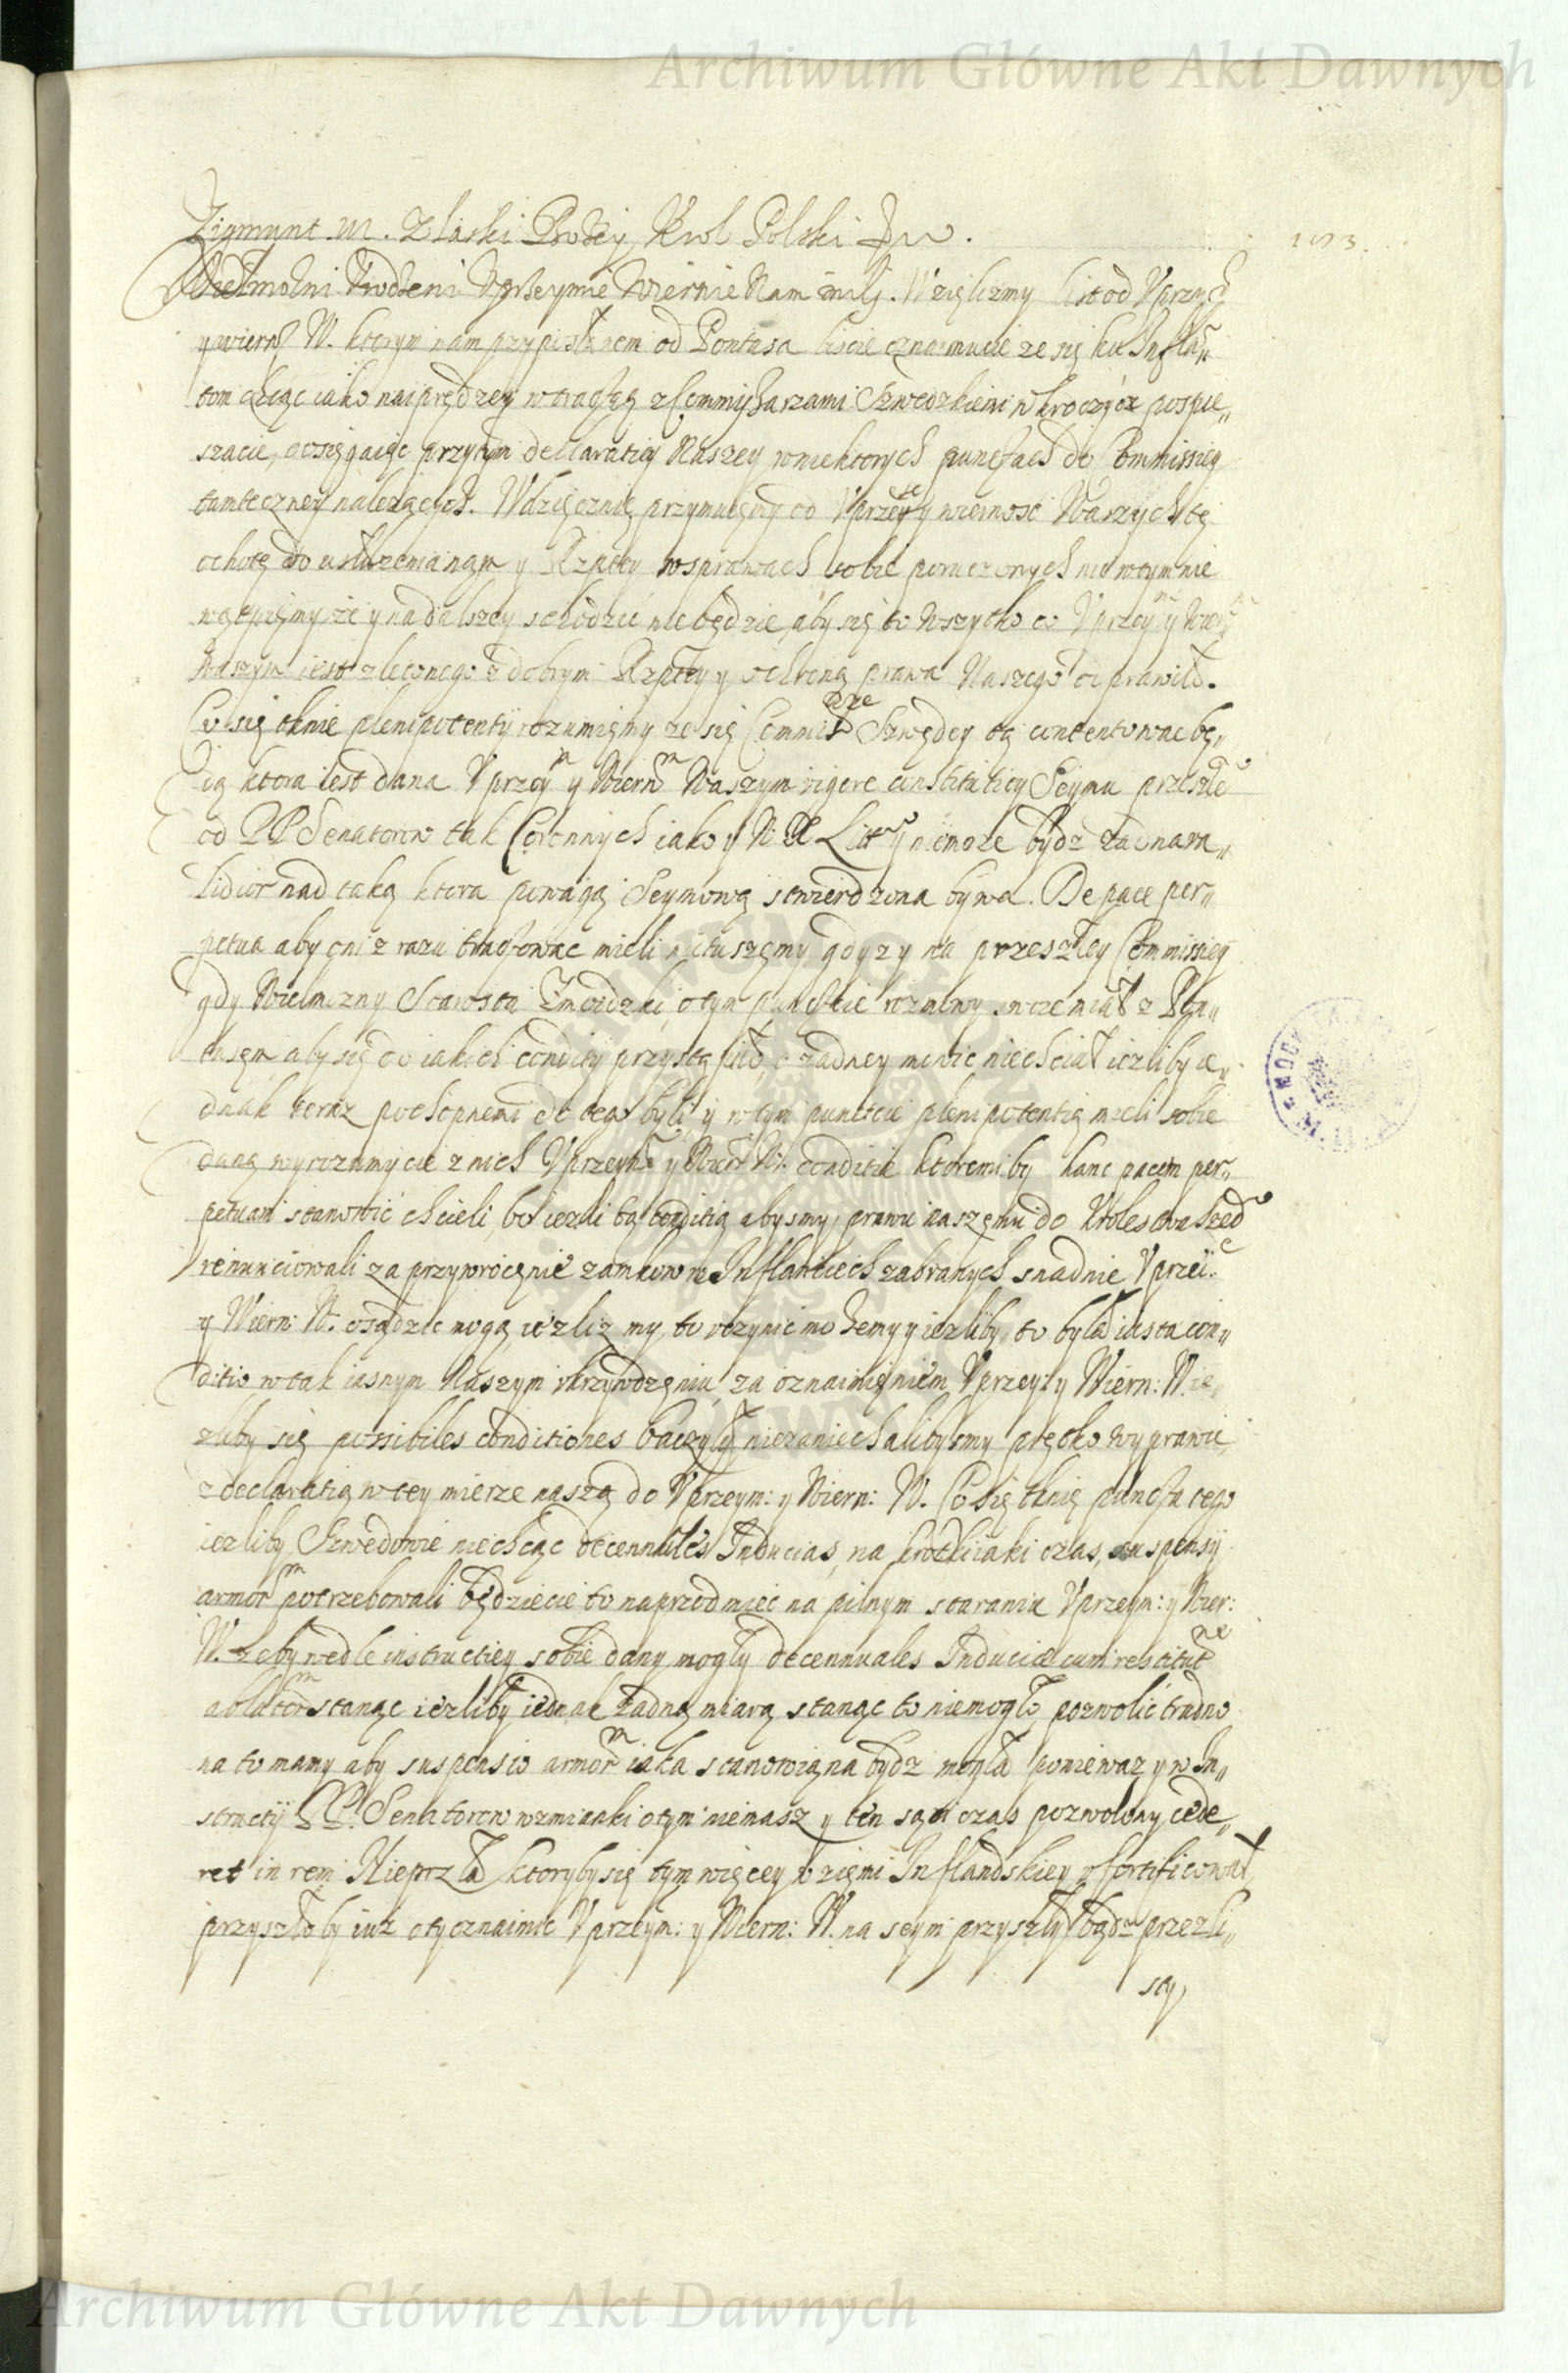 Archiwum Główne Akt Dawnych
Zigmunt III. Z łaski Bożey Krol Polski &c.
Wielmożni Vrodzeni Vprzeymie Wiernie Nam mili. Wzięlizmy list od Vprzey
y wiern W. ktorym nam przypisłanem od Pontusa liscie oznaimuiecie ze się ku Inflan„
tom chcąc iako naiprędzey w tractat z Commissarzami Szwedzkiemi wkroczyć pospie„
szacie, dosięgaiąc przytym declaratiey Naszey w niektorych punctach do Commissiey
tamteczney należących. Wdzięcznie przymuięmy od Vprzey y wiernosc Waszych tę
ochotę do usłużenia nam y Rzptey w sprawach sobie poruczonych nic w tym nie
wątpięmy że y na dalszey schodzić nie będzie, aby się to wszytko co Vprzey y Wier
Waszym iest zleconego z dobrym Rzptey y ochroną prawa Naszego odprawiło.
Co się tknie plenipotentÿ rozumięmy ze się Commissarze Szwędzcy tą contentowac bę„
dą ktora iest dana Vprzey y Wiern Waszym vigore constitutiey Seymu przeszłe
od PP Senatorow tak Coronnych iako y W. X Litt y niemoże bydz żadna va„
lidior nad taką ktora powagą Seymową stwierdzona bywa. De pace per„
petua aby oni z razu tractowac mieli nietuszęmy gdyz y na przeszłey Commissiey
gdy Wielmozny Starosta Zmoidzki o tym punctie rozmowy swoie miał z Pon„
tusęm aby się do iakich conditÿ przystąpiło, o żadney mowic niechciał ieżliby ie„
dnak teraz pochopnemi do tego byli y w tym punctcie plenipotentią mieli sobie
daną wyrozumycie z nich Vprzeym y Wier W. conditie ktoremiby hanc pacem per„
petuam stanowić chcieli bo iezli tą conditią abysmy prawu naszęmu do Krolestwa Szwed
renunciowali za przywrocęnie zamkow w Inflanciech zabranych snadnie Vprzei:
y Wiern: W. osądzic mogą, ieżliz my to vczynic możemy y ieżliby to była iusta con„
ditio w tak iasnym Naszym vkrzywdzęniu, za oznaimięniem Vprzey: y Wiern: W. ie„
żliby się possibiles conditiones baczyły niezaniechalibysmy prętko wyprawić
z declaratią w tey mierze naszą do Vprzeym: y Wiern: W. Co się tknię puncta tego
ieżliby Szwedowie niechcąc decennales Inducias, na krotki iaki czas, suspensÿ
armor potrzebowali będziecie to naprzod mieć na pilnym staraniu Vprzeym: y Wier:
W. żeby wedle instructiey sobie dany mogły decennuales Induciæ cum restitutne
ablator stanąc ieżliby iednak żadną miarą stanąc to niemogło, pozwolić trudno
na to mamy aby suspensio armor iaka stanowiąna bydz mogła ponieważ y w In„
structÿ PP. Senatorow wzmianki o tym niemasz y ten sąm czas pozwolony cede„
ret in rem Nieprzła ktorybysię tym więcey w zięmi Inflandskiey vfortificował,
przyszłoby iuż o tyoznaimic Vprzeym: y Wiern: W. na seym przyszły bądz przez li„
sty
Archiwum Główne Akt Dawnych